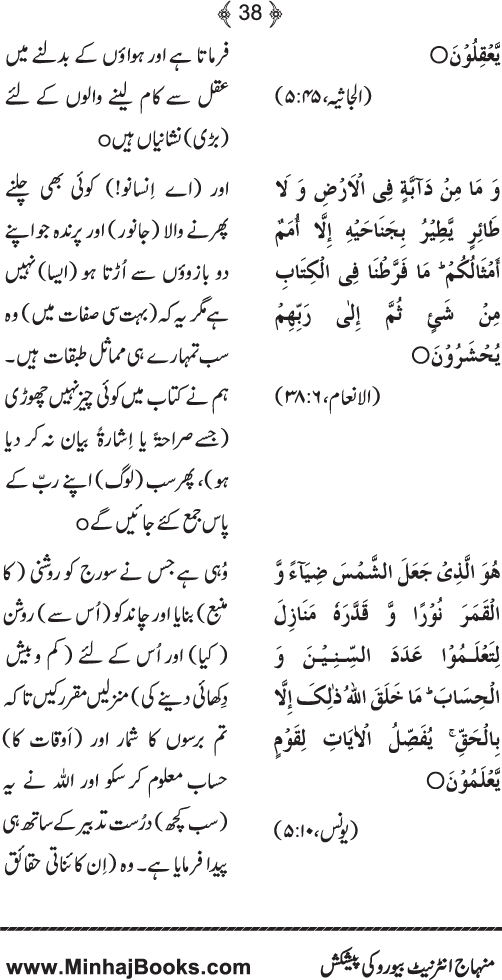 ﴿ 38 ﴾
یَّعْقِلُوْنَ○
(الجاثیہ، ۴۵:۵)
وَ مَا مِنْ دَآبَّةٍ فِی الْاَرْضِ وَ لَا
طٰٓائِرٍ یَّطِیْرُ بِجَنَاحَیْهِ اِلَّا اُمَمٌ
اَمْثَالُکُمْ ؕ مَا فَرَّطْنَا فِی الْکِتٰبِ
مِنْ شَیْءٍ ثُمَّ اِلٰی رَبِّهِمْ
یُحْشَرُوْنَ○
(الانعام، ۶:۳۸)
هُوَ الَّذِیْ جَعَلَ الشَّمْسَ ضِیَآءً وَّ
الْقَمَرَ نُوْرًا وَّ قَدَّرَهٗ مَنَازِلَ
لِتَعْلَمُوْا عَدَدَ السِّنِیْنَ وَ
الْحِسَابَ ؕ مَا خَلَقَ اللهُ ذٰلِکَ اِلَّا
بِالْحَقِّ ۚ یُفَصِّلُ الْاٰیَاتِ لِقَوْمٍ
یَّعْلَمُوْنَ○
(یونس، ۱۰:۵)
فرماتا ہے اور ہواؤں کے بدلنے میں
عقل سے کام لینے والوں کے لئے
(بڑی) نشانیاں ہیں○
اور (اے اِنسانو!) کوئی بھی چلنے
پھرنے والا (جانور) اور پرندہ جو اپنے
دو بازوؤں سے اُڑتا ہو (ایسا) نہیں
ہے مگر یہ کہ (بہت سی صفات میں) وہ
سب تمہارے ہی مماثل طبقات ہیں۔
ہم نے کتاب میں کوئی چیز نہیں چھوڑی
(جسے صراحۃً یا اِشارۃً بیان نہ کر دیا
ہو)، پھر سب (لوگ) اپنے ربّ کے
پاس جمع کئے جائیں گے○
وُہی ہے جس نے سورج کو روشنی (کا
منبع) بنایا اور چاند کو (اُس سے) روشن
(کیا) اور اُس کے لئے (کم و بیش
دِکھائی دینے کی) منزلیں مقرر کیں تا کہ
تم برسوں کا شمار اور (اَوقات کا)
حساب معلوم کر سکو اور اللہ نے یہ
(سب کچھ) درُست تدبیر کے ساتھ ہی
پیدا فرمایا ہے۔ وہ (اِن کائناتی حقائق
منہاج انٹرنیٹ بیورو کی پیشکش
www.MinhajBooks.com